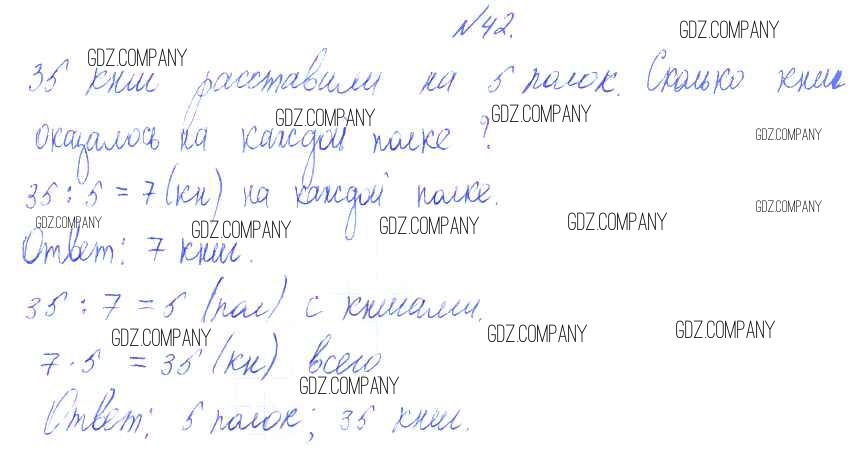 №42.
35 книг расставили на 5 полок. Сколько книг
оказалось на каждой полке?
35 : 5 = 7 (кн) на каждой полке.
Ответ: 7 книг.
35 : 7 = 5 (пол) с книгами.
7 · 5 = 35 (кн) всего
Ответ: 5 полок; 35 книг.
GDZ.COMPANY
GDZ.COMPANY
GDZ.COMPANY
GDZ.COMPANY
GDZ.COMPANY
GDZ.COMPANY
GDZ.COMPANY
GDZ.COMPANY
GDZ.COMPANY
GDZ.COMPANY
GDZ.COMPANY
GDZ.COMPANY
GDZ.COMPANY
GDZ.COMPANY